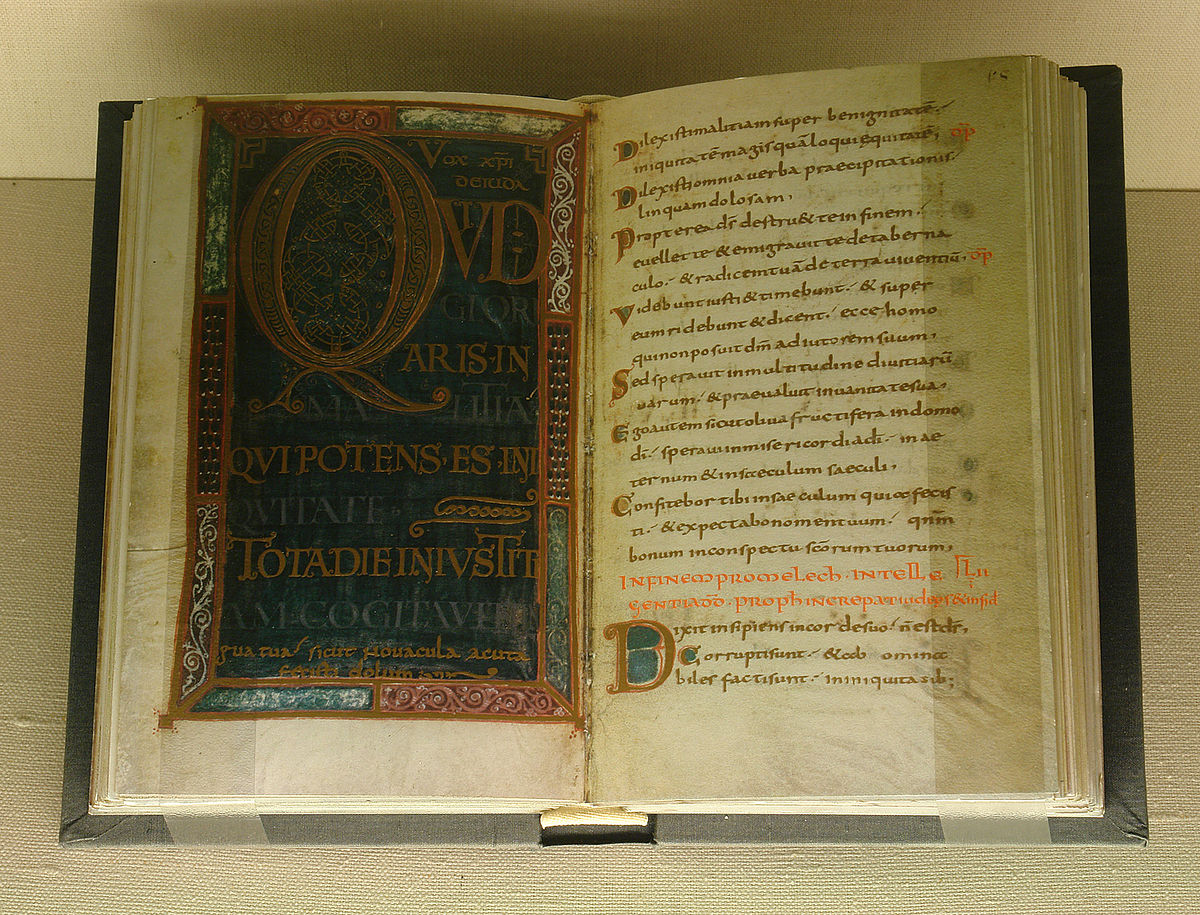 Vox xp̄i
de iuda
QVID
GLORI
ARIS·IN
MA LITIA
QVI POTENS·ES·INI
QVITATE
TOTA DIE INIVSTIT
AM·COGITAVIT
gua tua· sicut novacula acuta
fecisti dolum
Dilexisti malitiam super benignitatē·
iniquitatē magis quā loqui equitatē;
Dilexisti omnia verba praecipitationis·
linguam dolosam,
Propterea ds̄ destru&te in finem·
evellet te & emigravit te de taberna
culo· & radicem tuā de terra viventiū,
Videbunt iusti & timebunt· & super
eum ridebunt & dicent· ecce homo
qui non posuit dm̄ adiutorem suum,
Sed speravit in multitudine divitiarū
suarum· & praevaluit in vanitate sua,
Ego autem sicut oliva fructifera in domo
di· speravi in misericordia di· in ae
ternum & in saeculum saeculi,
Confitebor tibi in saeculum quia fecis
ti· & expectabo nomen tuum· qnm̄
bonum in conspectu scōrum tuorum,
IN FINEM PRO MELECH·INTELLE
Dixit insipiens in corde suo· n̄ est ds̄,
Corrupti sunt· & ab omina
biles facti sunt· in iniquitatib;